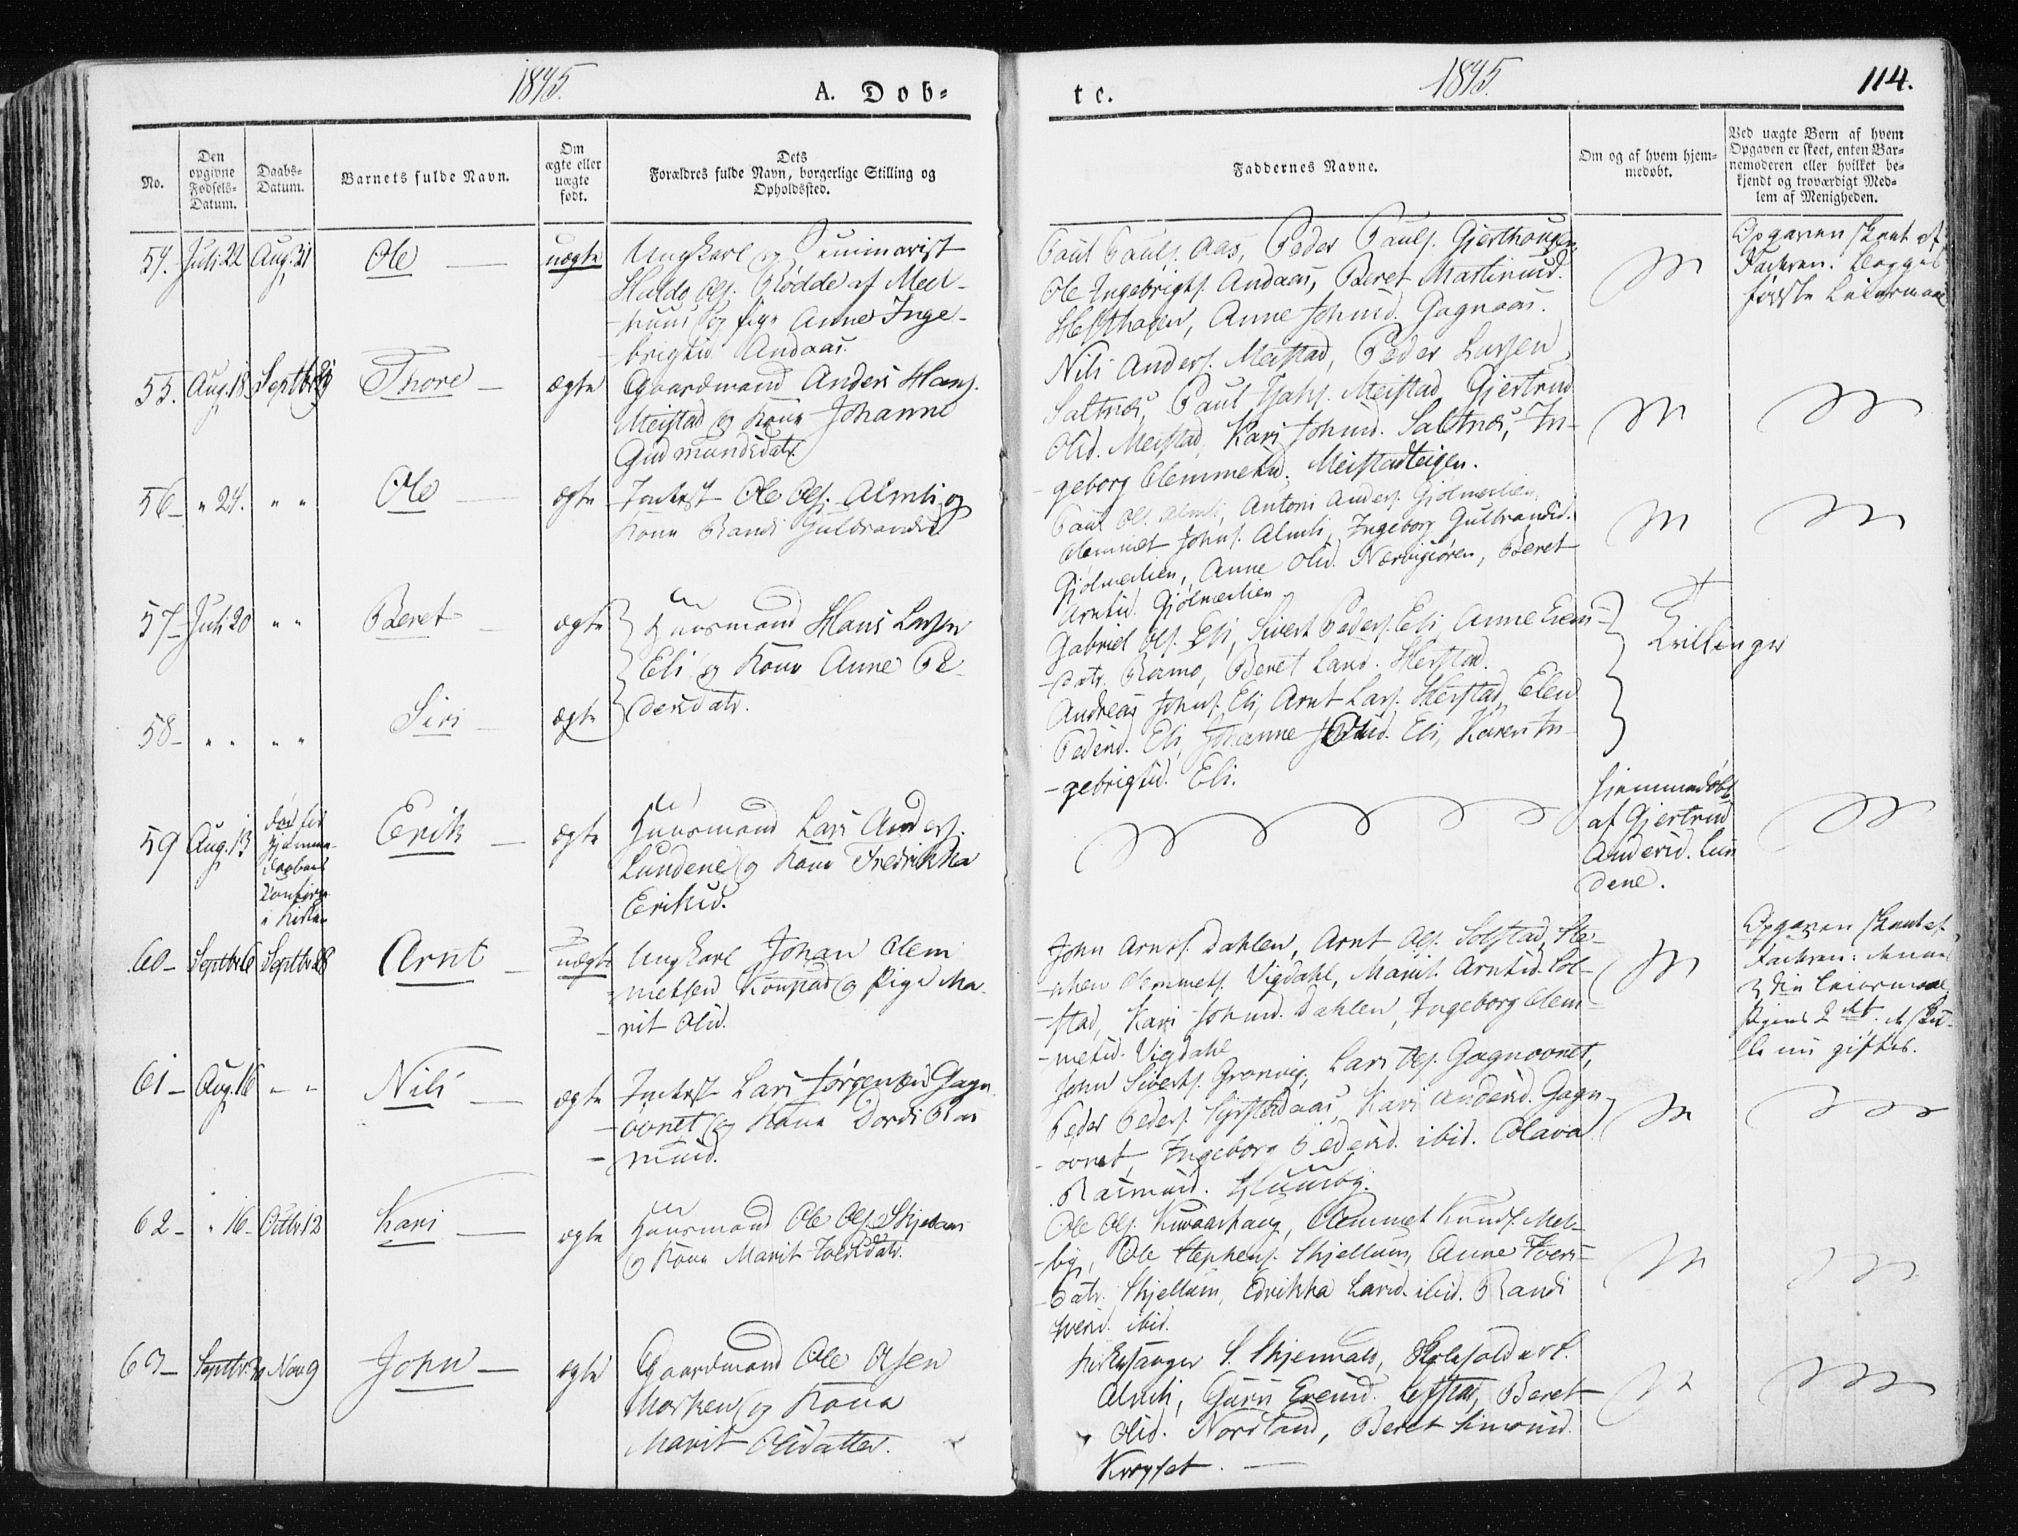 1845.
A. Dob-
te.
1845.
114.
No.
Den opgivne Fødsels-Datum.
Daabs-Datum.
Barnets fulde Navn.
Om ægte eller uægte født.
Dets Forældres fulde Navn, borgerlige Stilling og Opholdssted.
Faddernes Navne.
Om og af hvem hjem-medøbt.
Ved uægte Børn af hvem
Opgaven er skeet, enten Bar-
nemoderen eller hvilket be-
kjendt og troværdigt Med-
lem af Menigheden.
54. Juli 22 Aug. 31 Ole uægte
Ungkarl og Seminarist
Haldo Ols. Rødde af Mel-
-huus og Pige Anne Inge-
-brigtsd. Andaas.
Paul Pauls. Aas, Peder Pauls. Gjerthougen
Ole Ingebrigts. Andaas, Beret Martinusd.
Anne Johnsd. Gagnaas.
Opgaven skeet af
Faderen. Begges
første Leiermaal
55. Aug. 18 Septbr Thore ægte
Gaardmand Anders Hans.
Meistad og Kone Johanne
Gudmundsdatr.
Nils Anders. Meistad, Peder Larsen
Saltnes, Paul Meistad, Gjertrud
Olsd. Meistad, Kari Johnsd. Saltnes, In-
-geborg Clemmetsd. Meistadteigen.
56 " 24. " " Ole ægte
Inderst Ole Ols. Almli og
Kone Randi Gulbrandsd.
Paul Ols. Almli, Antoni Anders. Gjølmeslien,
Clemmet Johns. Almli, Ingeborg Gulbrandsd.
Gjølmeslien, Anne Olsd. Beret
Arntsd. Gjølmeslien
57 Juli 20 " " Beret ægte
Huusmand Hans Larsen
Eli og Kone Anne Pe-
dersdatr.
Gabriel Ols. Eli, Sivert Peders. Eli, Anne
-datr. Ramo, Beret Larsd. Herstad.
Tvillinger
58 " " " " Siri ægte
Andreas Johns. Eli, Arnt Lars. Herstad, Elen
Pedersd. Eli, Johanne Olsd. Eli, Karen In-
-gebrigtsd. Eli.
59 Aug. 13 Erik ægte
Huusmand Lars Anders.
Lundene og Kone Fredrikka
Eriksd.
hjemmedøbt
af Gjertrud
Andersd. Lun
dene.
60 Septbr 6 Septbr 28 Arnt uægte
Ungkarl Johan Clem
-metsen og Pige Ma-
-rit Olsd.
John Arnts. Dahlen, Arnt Ols. Solstad, Ste-
-phen Clemmets. Vigdahl, Marit Arntsd. Sol-
-stad, Kari Johnsd. Dahlen, Ingeborg Clem-
-metsd. Vigdahl
Opgaven skeet af
Faderen:
Leiermaal
Pigens 2det.
giftes.
61 Aug. 16 " " Nils ægte
Inderst Lars Jørgensen Gagn
-ovnet og Kone Dordi Ras
-musd.
John Siverts. Granvig, Lars Ols. Gagnovnet,
Peder Peders. Kari Andersd. Gagn
-ovnet, Ingeborg Pedersd. ibid. Olava
Rasmusd. Huusby.
62 " 16 Octbr 12 Kari ægte
Huusmand Ole Ols. Skjellum
og Kone Marit Iversdatr.
Ole Ols. Clemmet Knuds. Mel-
-by, Ole Stephens. Skjellum, Anne Ivers-
-datr. Skjellum, Edrikka Larsd. ibid. Randi
Iversd. ibid.
63 Septbr 30 Nov 9 John ægte
Gaardmand Ole Olsen
Morken og Kone
Marit Olsdatter.
Kirkesanger S. Skjennald,
Almli, Guru Evensd. Beret
Olsd. Nordtand, Beret Simonsd.